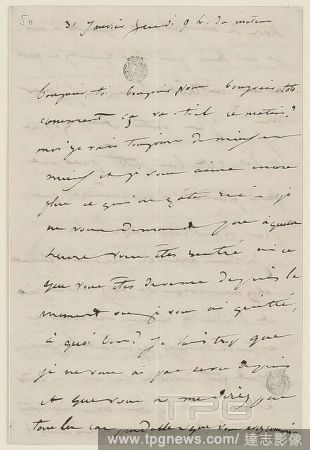 50
31 Janvier Jeudi 9 h. du matin
Bonjour, toi, bonjour mon bonjour, toto
comment ça va-t-il ce matin?
moi je vais toujours de mieux en
mieux et je vous aime encore
plus ce qui ne gâte rien. je
ne vous demande pas à quelle
heure vous êtes rentré ni ce
que vous êtes devenu depuis le
moment où je vous ai quitté,
à quoi bon? Je sais trop que
je ne vous ai pas revu depuis
et que vous ne me direz pas
tous les
que vous
TPG
www.tpgnews.com / 達志影像